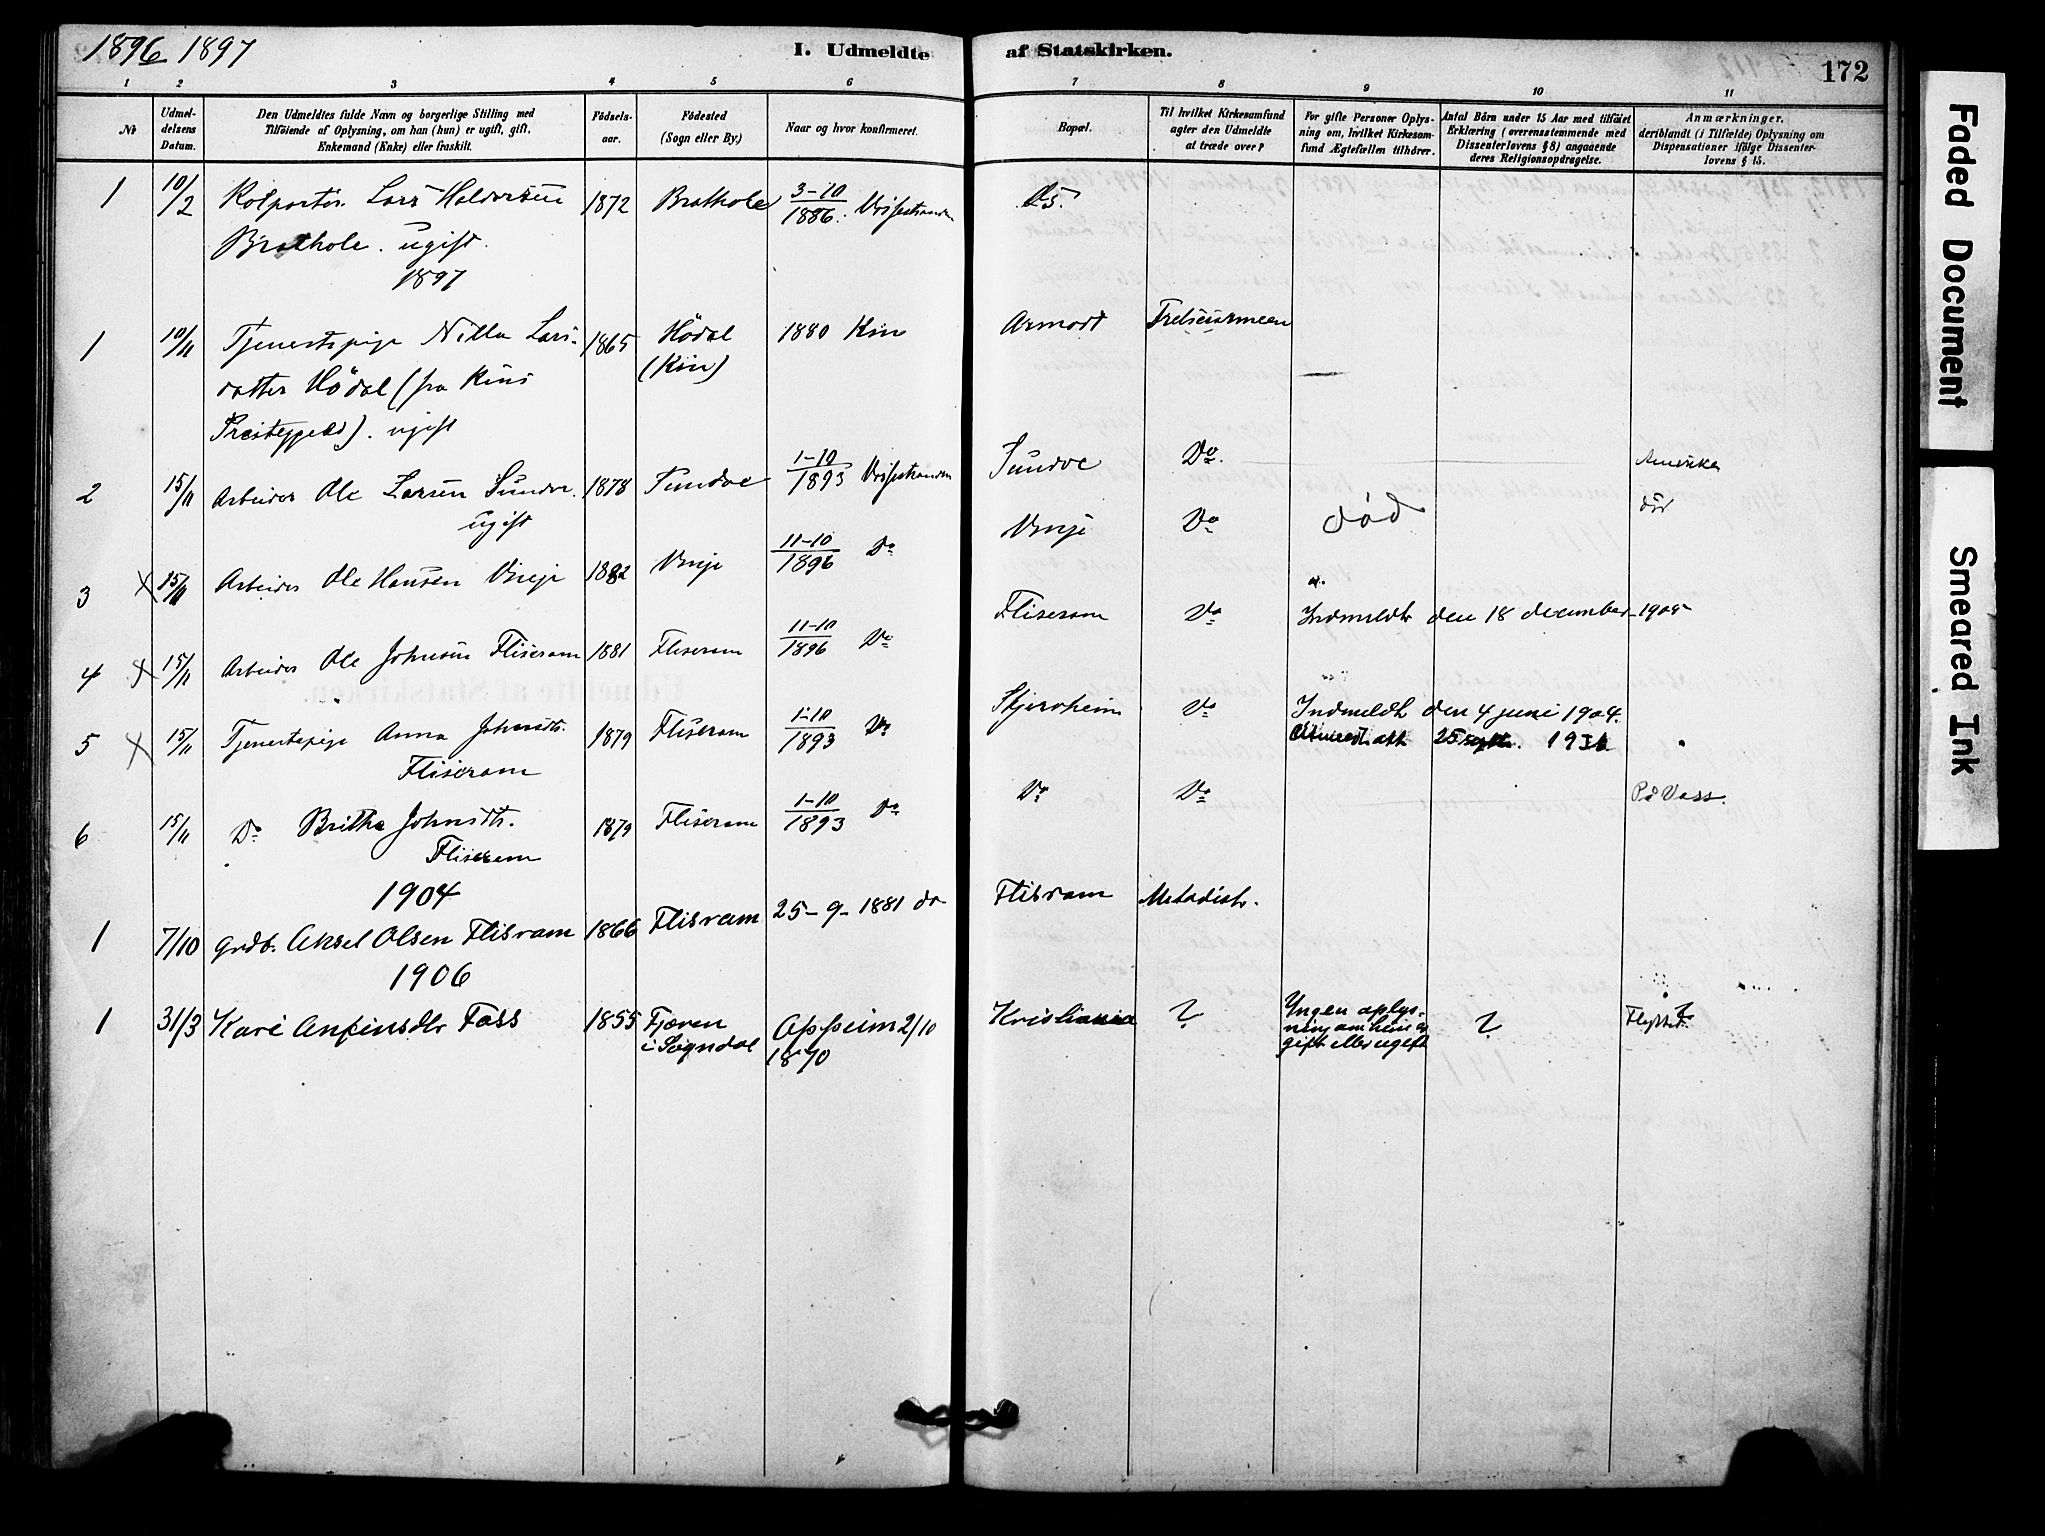 1896 1897
I. Udmeldte af Statskirken.
172
1 2 3 4 5 6 7 8 9 10 11
№
Udmel-
delsens
Datum.
Den Udmeldtes fulde Navn og borgerlige Stilling med
Tilföiende af Oplysning, om han (hun) er ugift, gift,
Enkemand (Enke) eller fraskilt.
Födsels-
aar.
Födested
(Sogn eller By.)
Naar og hvor konfirmeret.
Bopæl.
Til hvilket Kirkesamfund
agter den Udmeldte
at træde over?
For gifte Personer Oplys-
ning om, hvilket Kirkesam-
fund Ægtefællen tilhörer.
Antal Börn under 15 Aar med tilföiet
Erklæring (overensstemmende med
Dissenterlovens § 8) angaaende
deres Religionsopdragelse.
Anmærkninger,
deriblandt (i Tilfælde) Oplysning om
Dispensationer ifölge Dissenter-
lovens § 15.
1 10/2 Kolportör Lars Haldorsen 1872 Brathole 3-10/1886. Vossestranden
Brathole. ugift.
1897
1 10/11 Tjenestepige Nilla Lars- 1865 Hödal 1880 Kin Armodt Frelsesarmeen
datter Hödal (fra Kins (Kin)
Præstegjeld). ugift
2 15/11 Arbeider Ole Larsen Sundve. 1878 Sundve 1-10/1893 Vossestranden Sundve Do. Amerika
ugift
død
3 x 15/11 Arbeider Ole Hansen Vinje 1882 Vinje 11-10/1896 Do Vinje Do død
4 x 15/11 Arbeider Ole Johnsen Fliseram 1881 Fliseram 11-10/1896 Do Fliseram Do Indmeldt den 18 december 1905
5 x 15/11 Tjenestepige Anna Johnsdtr. 1879 Fliseram 1-10/1893 Do Skjerveheim Do Indmeldt den 4 juni 1904.
Fliseram
25 septr.
6 15/11 Do Britha Johnsdtr. 1879 Fliseram 1-10/1893 Do Do Do På Voss.
Fliseram
1904
1 7/10 grdb. Aksel Olsen Flisram 1866 Flisram 25-9-1881 do Flisram Metodistr.
1906
1 31/3 Kari Anfinsdtr Fass 1855 Fjæren Opheim 2/10 Kristiania ? Yngen oplys- ? Flyttet ?
i Sogndal 1870 ning om hun er
gift eller ugift
Faded Document
Smeared Ink